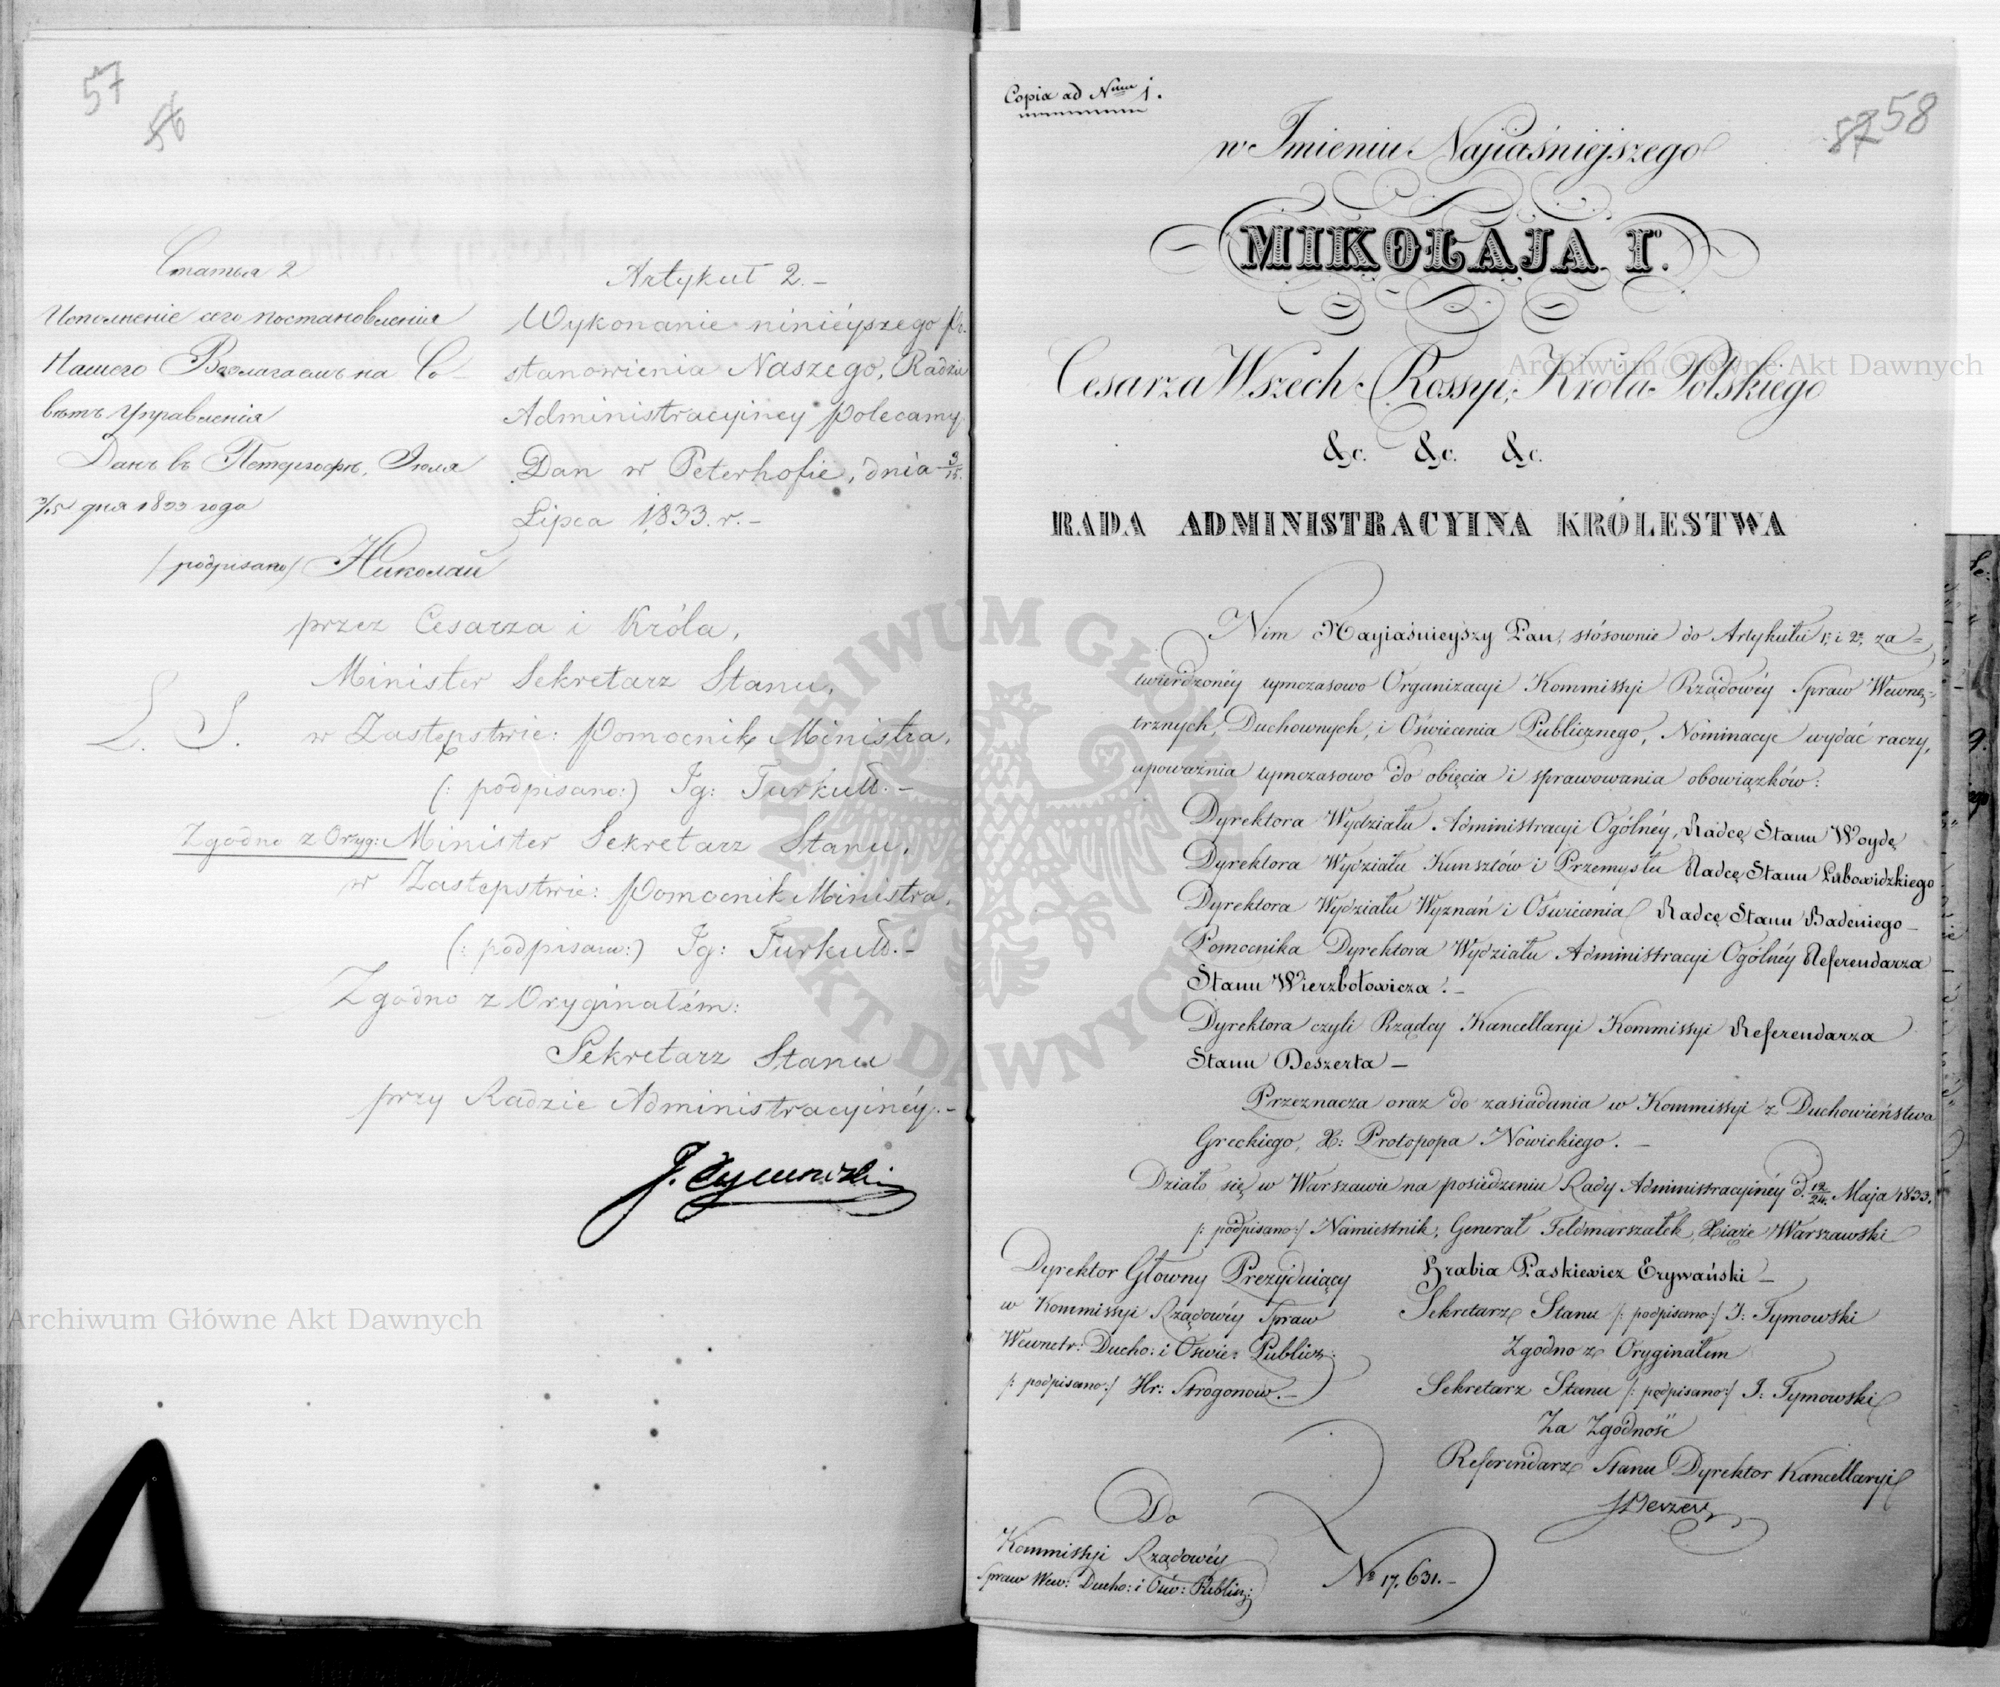 57
56
Статья 2
Исполненіе сего постановленія
Нашего Возлагаемъ на Со-
вѣтъ Управленія
Данъ въ Петергофѣ, Іюля
3/15 дня 1833 года
/podpisano/ Николай
Artykuł 2. –
Wykonanie ninieyszego po-
stanowienia Naszego, Radzie
Administracyiney polecamy.
Dan w Peterhofie, dnia 3/15.
Lipca 1833. r. –
przez Cesarza i Króla,
Minister Sekretarz Stanu,
L. S. w Zastępstwie: Pomocnik Ministra,
(: podpisano:) Ig: Turkułł. –
Zgodno z Oryg: Minister Sekretarz Stanu,
w Zastępstwie: Pomocnik Ministra,
(: podpisano:) Ig: Turkułł. –
Zgodno z Oryginałem:
Sekretarz Stanu
przy Radzie Administracyinéy. –
J. Tymowski
Copia ad Num 1.
87 58
w Imieniu Najiaśniejszego
MIKOŁAJA Iº.
Cesarza Wszech Rossyi, Króla Polskiego
&c. &c. &c.
RADA ADMINISTRACYINA KRÓLESTWA
Nim Nayiaśnieyszy Pan, stósownie do Artykułu 1º. i 2º. za=
twierdzonéy tymczasowo Organizacyi Kommissyi Rządowéy Spraw Wewnę=
trznych, Duchownych, i Oświecenia Publicznego, Nominacye wydać raczy,
upoważnia tymczasowo do obięcia i sprawowania obowiązków:
Dyrektora Wydziału Administracyi Ogólnéy, Radcę Stanu Woydę
Dyrektora Wydziału Kunsztów i Przemysłu Radcę Stanu Lubowidzkiego
Dyrektora Wydziału Wyznań i Oświecenia Radcę Stanu Badeniego –
Pomocnika Dyrektora Wydziału Administracyi Ogólnéy Referendarza
Stanu Wierzbołowicza. –
Dyrektora czyli Rządcy Kancellaryi Kommissyi Referendarza
Stanu Deszerta –
Przeznacza oraz do zasiadania w Kommissyi z Duchowieństwa
Greckiego, X: Protopopa Nowickiego. –
Działo się w Warszawie na posiedzeniu Rady Administracyinéy d. 12/24. Maja 1833.
/: podpisano:/ Namiestnik, Generał Feldmarszałek, Xiąże Warszawski
Hrabia Paskiewicz Erywański –
Dyrektor Głowny Prezyduiący
w Kommissyi Rządowéy Spraw
Wewnetr: Ducho: i Oświe: Publicz:
/: podpisano:/ Hr: Strogonow. –
Sekretarz Stanu /: podpisano:/ J: Tymowski
Zgodno z Oryginałem
Sekretarz Stanu /: podpisano:/ J: Tymowski
Za Zgodność
Referendarz Stanu Dyrektor Kancellaryi
Deszert
Do
Kommissyi Rządowéy
Spraw Wew: Ducho: i Ośw: Publicz:
Nº 17,631. –
Archiwum Główne Akt Dawnych
Archiwum Główne Akt Dawnych
ARCHIWUM GŁÓWNE AKT DAWNYCH